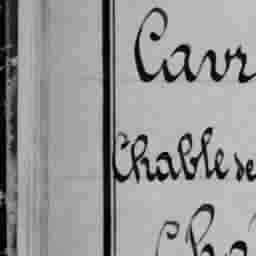 Cavr
Chable se
Cha